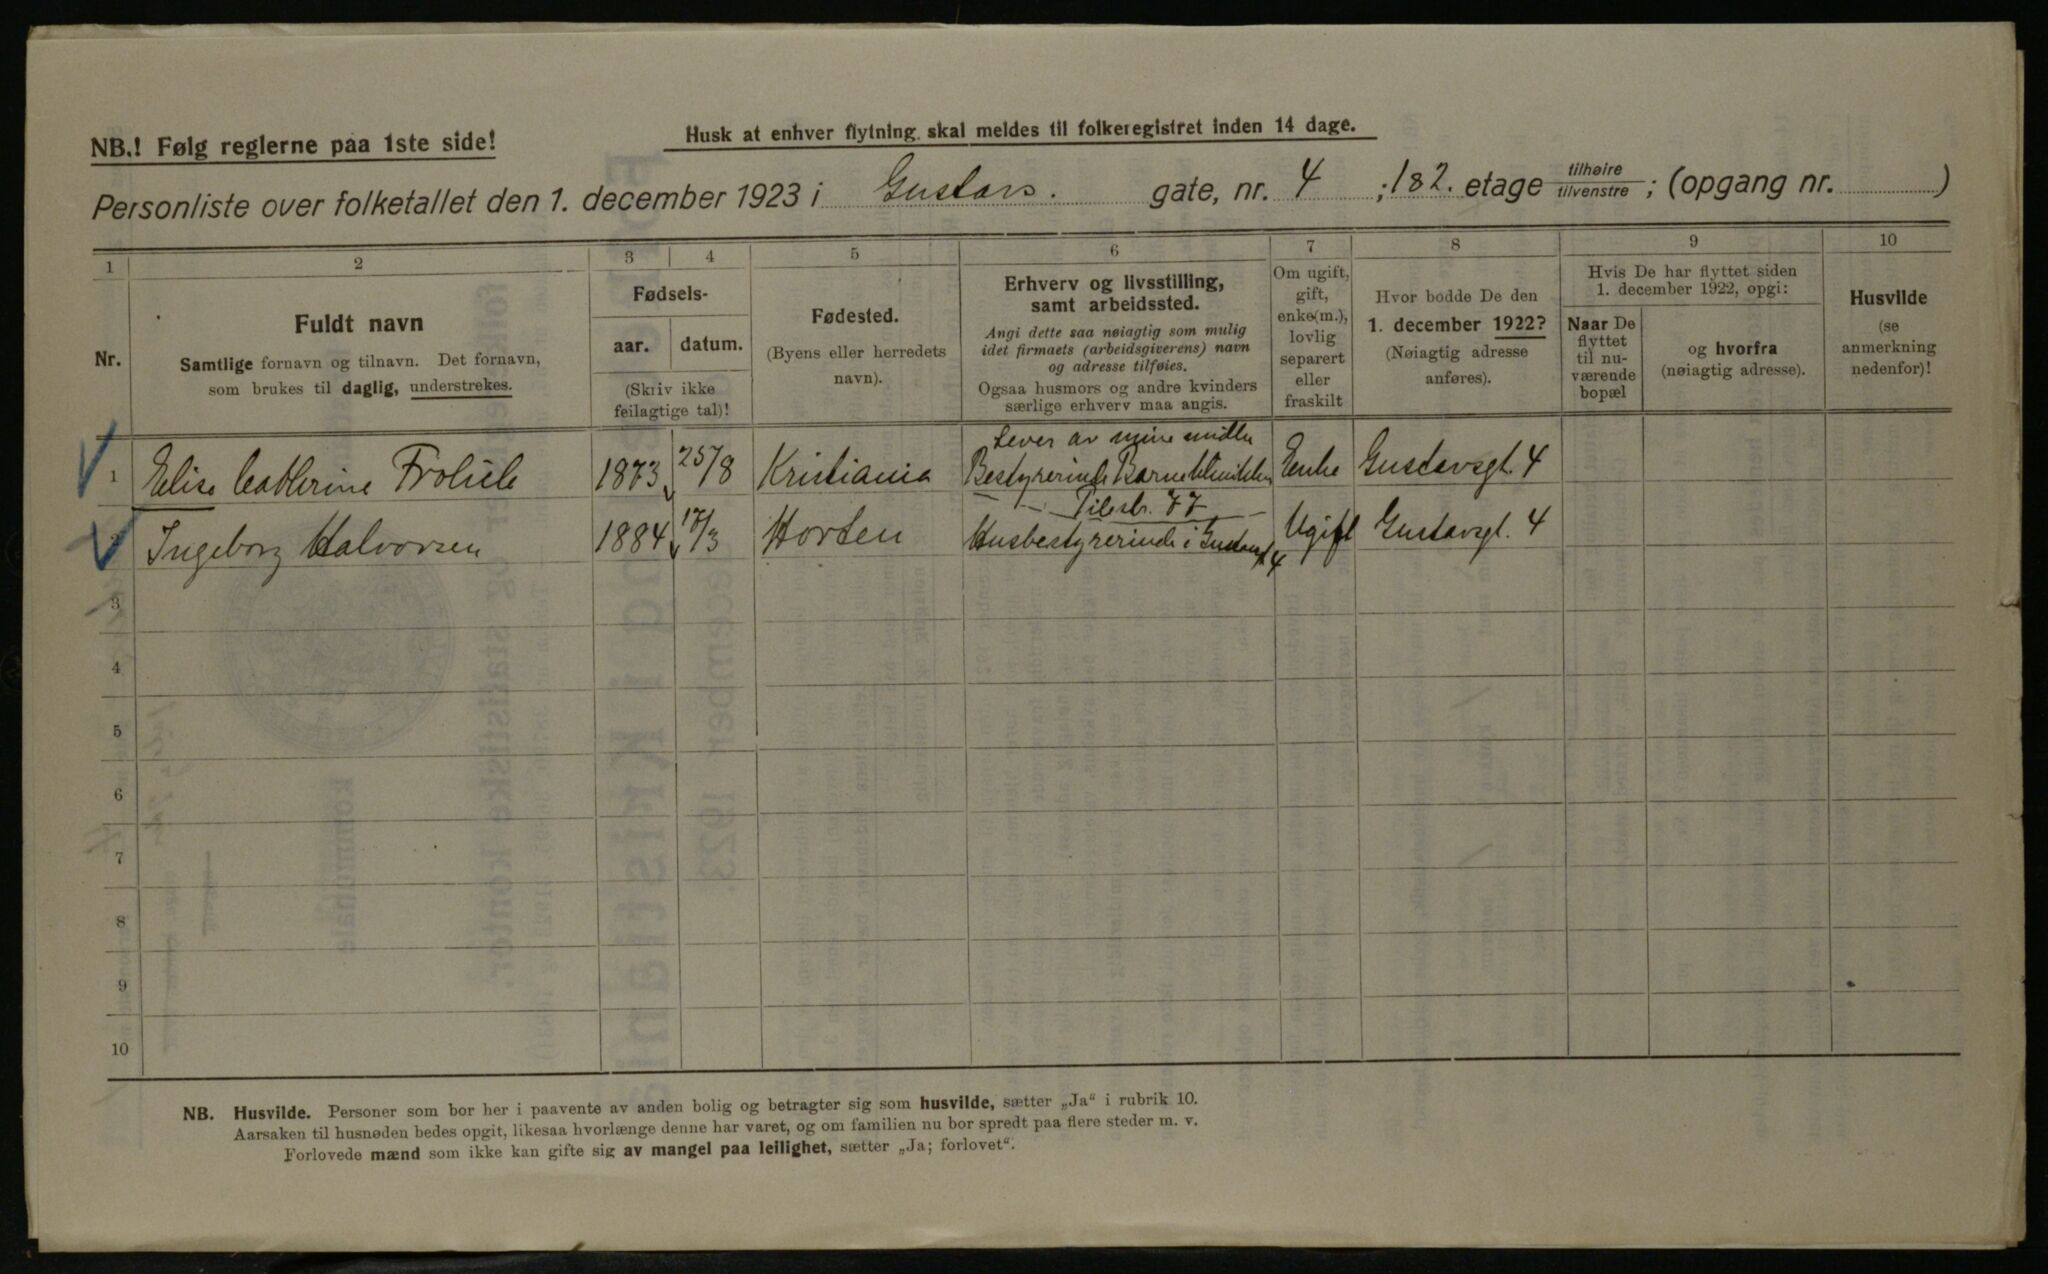 Husk at enhver flytning skal meldes til folkeregistret inden 14 dage.
NB.! Følg reglerne paa 1ste side!
Personliste over folketallet den 1. december 1923 i Gustavs. gate, nr. 4 ; 1&2. etage tilhøire/tilvenstre ; (opgang nr. )
1 2 3 4 5 6 7 8 9 10
Nr.
Fuldt navn
Samtlige fornavn og tilnavn. Det fornavn,
som brukes til daglig, understrekes.
Fødsels-
aar. datum.
(Skriv ikke
feilagtige tal)!
Fødested.
(Byens eller herredets
navn).
Erhverv og livsstilling,
samt arbeidssted.
Angi dette saa nøiagtig som mulig
idet firmaets (arbeidsgiverens) navn
og adresse tilføies.
Ogsaa husmors og andre kvinders
særlige erhverv maa angis.
Om ugift,
gift,
enke(m.),
lovlig
separert
eller
fraskilt
Hvor bodde De den
1. december 1922?
(Nøiagtig adresse
anføres).
Hvis De har flyttet siden
1. december 1922, opgi:
Naar De
flyttet
til nu-
værende
bopæl
og hvorfra
(nøiagtig adresse).
Husvilde
(se
anmerkning
nedenfor)!
Lever av mine midler
1 Elise Cathrine 1873 25/8 Kristiania Bestyrerinde Enke Gustavsgt. 4
Pilestr. 77
2 Ingeborg Halvorsen 1884 17/3 Horten Husbestyrerinde i Gustavsgt 4 Ugift Gustavsgt. 4
3
4
5
6
7
8
9
10
NB. Husvilde. Personer som bor her i paavente av anden bolig og betragter sig som husvilde, sætter „Ja“ i rubrik 10.
Aarsaken til husnøden bedes opgit, likesaa hvorlænge denne har varet, og om familien nu bor spredt paa flere steder m. v.
Forlovede mænd som ikke kan gifte sig av mangel paa leilighet, sætter „Ja; forlovet“.